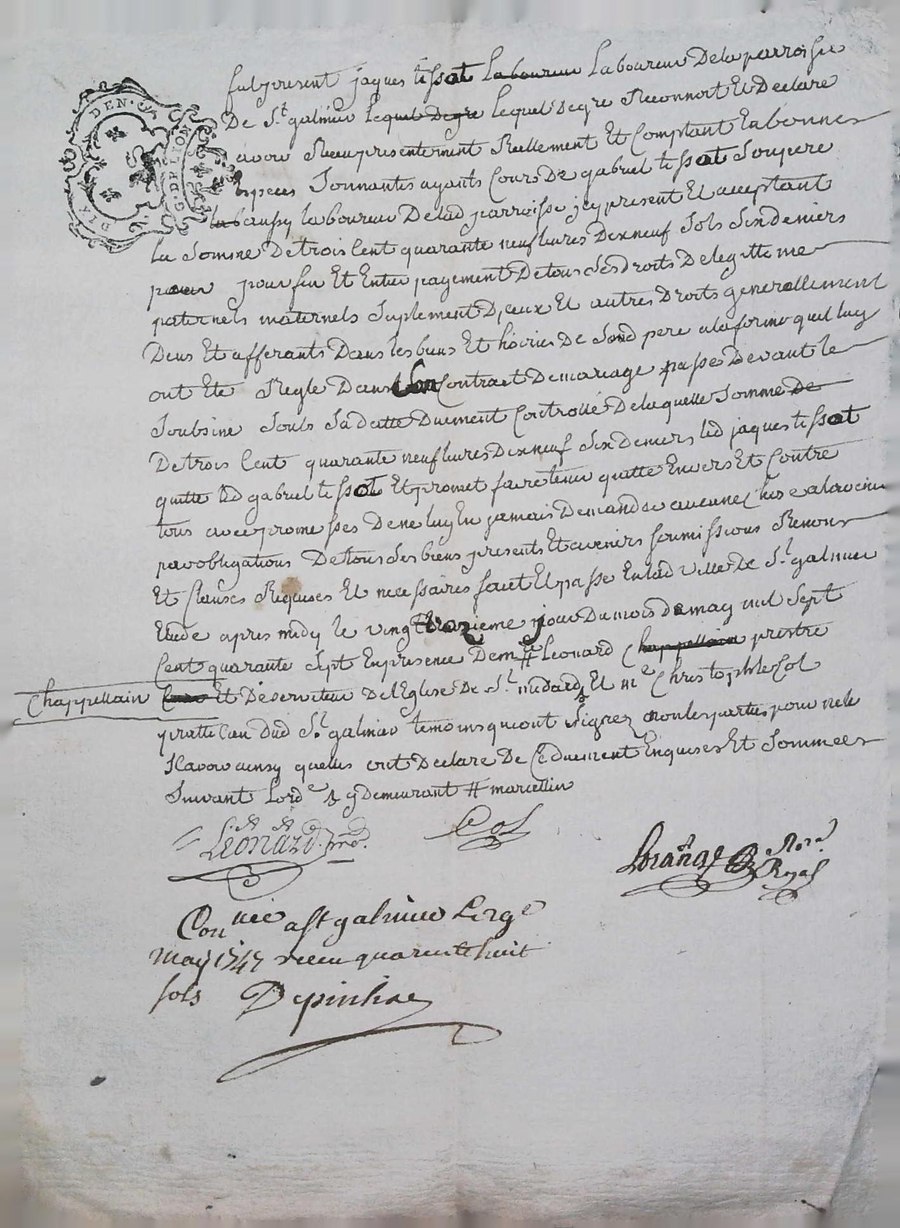 DEN.
G. DE LION
fut present jaques tissot laboureur laboureur De la parroisse
De St. galmier lequel Degre lequel Degre Reconnort Et Declare
avoir Receu presentement Reellement Et Comptant En bonnes
Especes Sonnantes ayants Cours De gabriel tissot Son pere
aussy laboureur De lad parroisse jcy present Et acceptant
la Somme De trois Cent quarante neuf livres Dixneuf Sols Six deniers
pour pour fin Et Entier payement De tous Ses Droits De legittime
paternels maternels Suplement D,iceux Et autres Droits generallement
Deus Et afferants Dans les biens Et hoiries De Sond pere a la forme quil luy
ont Ete Regle Dans Son Contract De mariage passe Devant le
Soubsine Soubs Sa datte Duement Controllé De laquelle Somme De
De trois Cent quarante neuf livres Dixneuf Six deniers led jaques tissot
quitte led gabriel tissot Et promet faire tenir quitte Envers Et Contre
tous avec promesses De ne luy En jamais Demander aucune Chose a lavenir
par obligations De tous Ses biens presents Et avenirs soumissions Renonr
Et Clauses Requises Et necessaires fait Et passe En lad Ville De St. galmier
Etude apres midy le vingt trozieme jour Du mois de may mil Sept
Cent quarante Sept En presence De mre # Leonard Chappellain prestre
Chappellain Et Deserviteur De l'Eglise De St. medard Et me Christophle Col
pratticien Dud St. galmier temoins qui ont Signez non les parties pour ne le
Scavoir ainsy quelles ont Declare De Ce Duement Enquises Et Sommees
Suivant Lorde & y Demeurant # marcellin
Leonard
Col
Lorange
Ne Royal
Connée a St galmier Le
may 1747 receu quarente huit
sols Depinhac